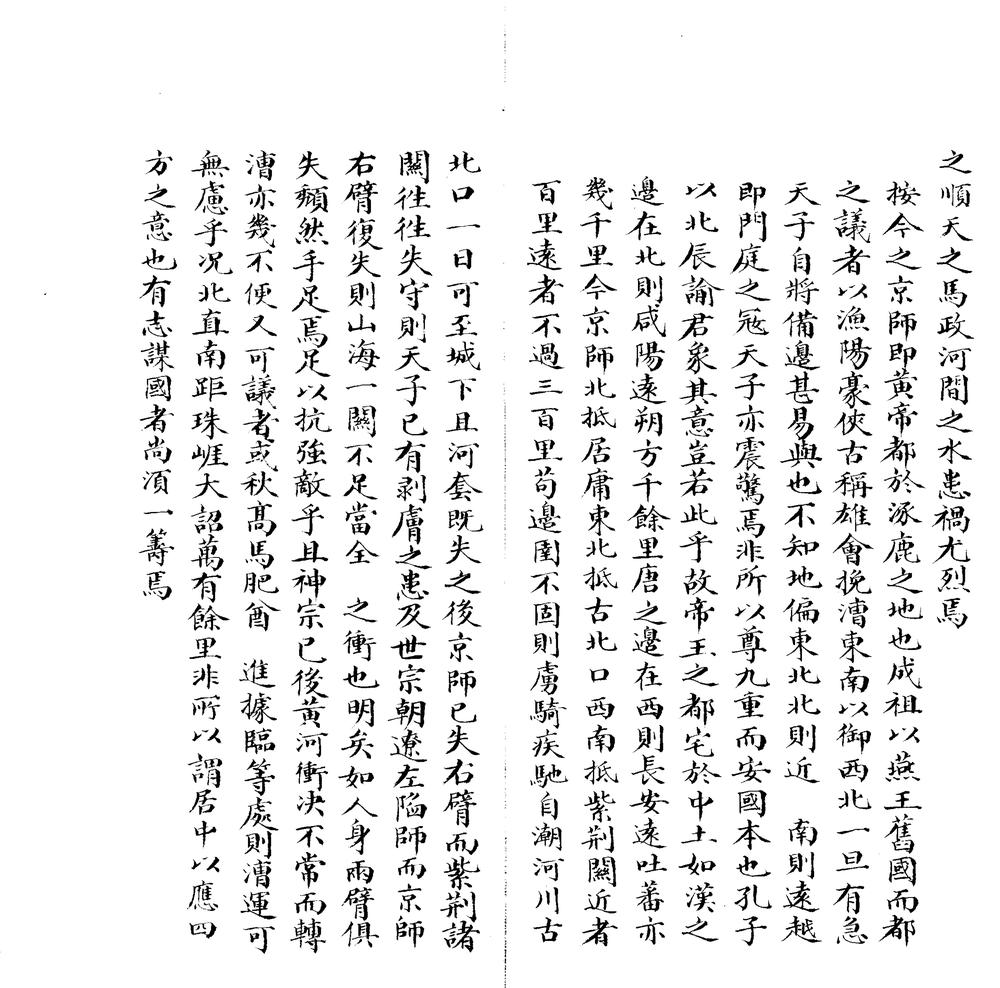 之順天之馬政河間之水患禍尤烈焉
按今之京師即黄帝都於涿鹿之地也成祖以燕王舊國而都
之議者以漁陽豪俠古稱雄會挽漕東南以御西北一旦有急
天子自將備邊甚易與也不知地偏東北北則近　南則遠越
即門庭之冦天子亦震驚焉非所以尊九重而安國本也孔子
以北辰諭君象其意豈若此乎故帝王之都宅於中土如漢之
邊在北則咸陽遠朔方千餘里唐之邊在西則長安遠吐蕃亦
幾千里今京師北抵居庸東北抵古北口西南抵紫荆關近者
百里遠者不過三百里苟邊圉不固則虜騎疾馳自潮河川古
北口一日可至城下且河套既失之後京師已失右臂而紫荆諸
關徃徃失守則天子已有剥膚之患及世宗朝遼左陷師而京師
右臂復失則山海一關不足當全　之衝也明矣如人身兩臂俱
失頽然手足焉足以抗強敵乎且神宗已後黄河衝决不常而轉
漕亦幾不便又可議者或秋髙馬肥酋　進據臨等處則漕運可
無慮乎况北直南距珠崕大詔萬有餘里非所以謂居中以應四
方之意也有志謀國者尚湏一籌焉